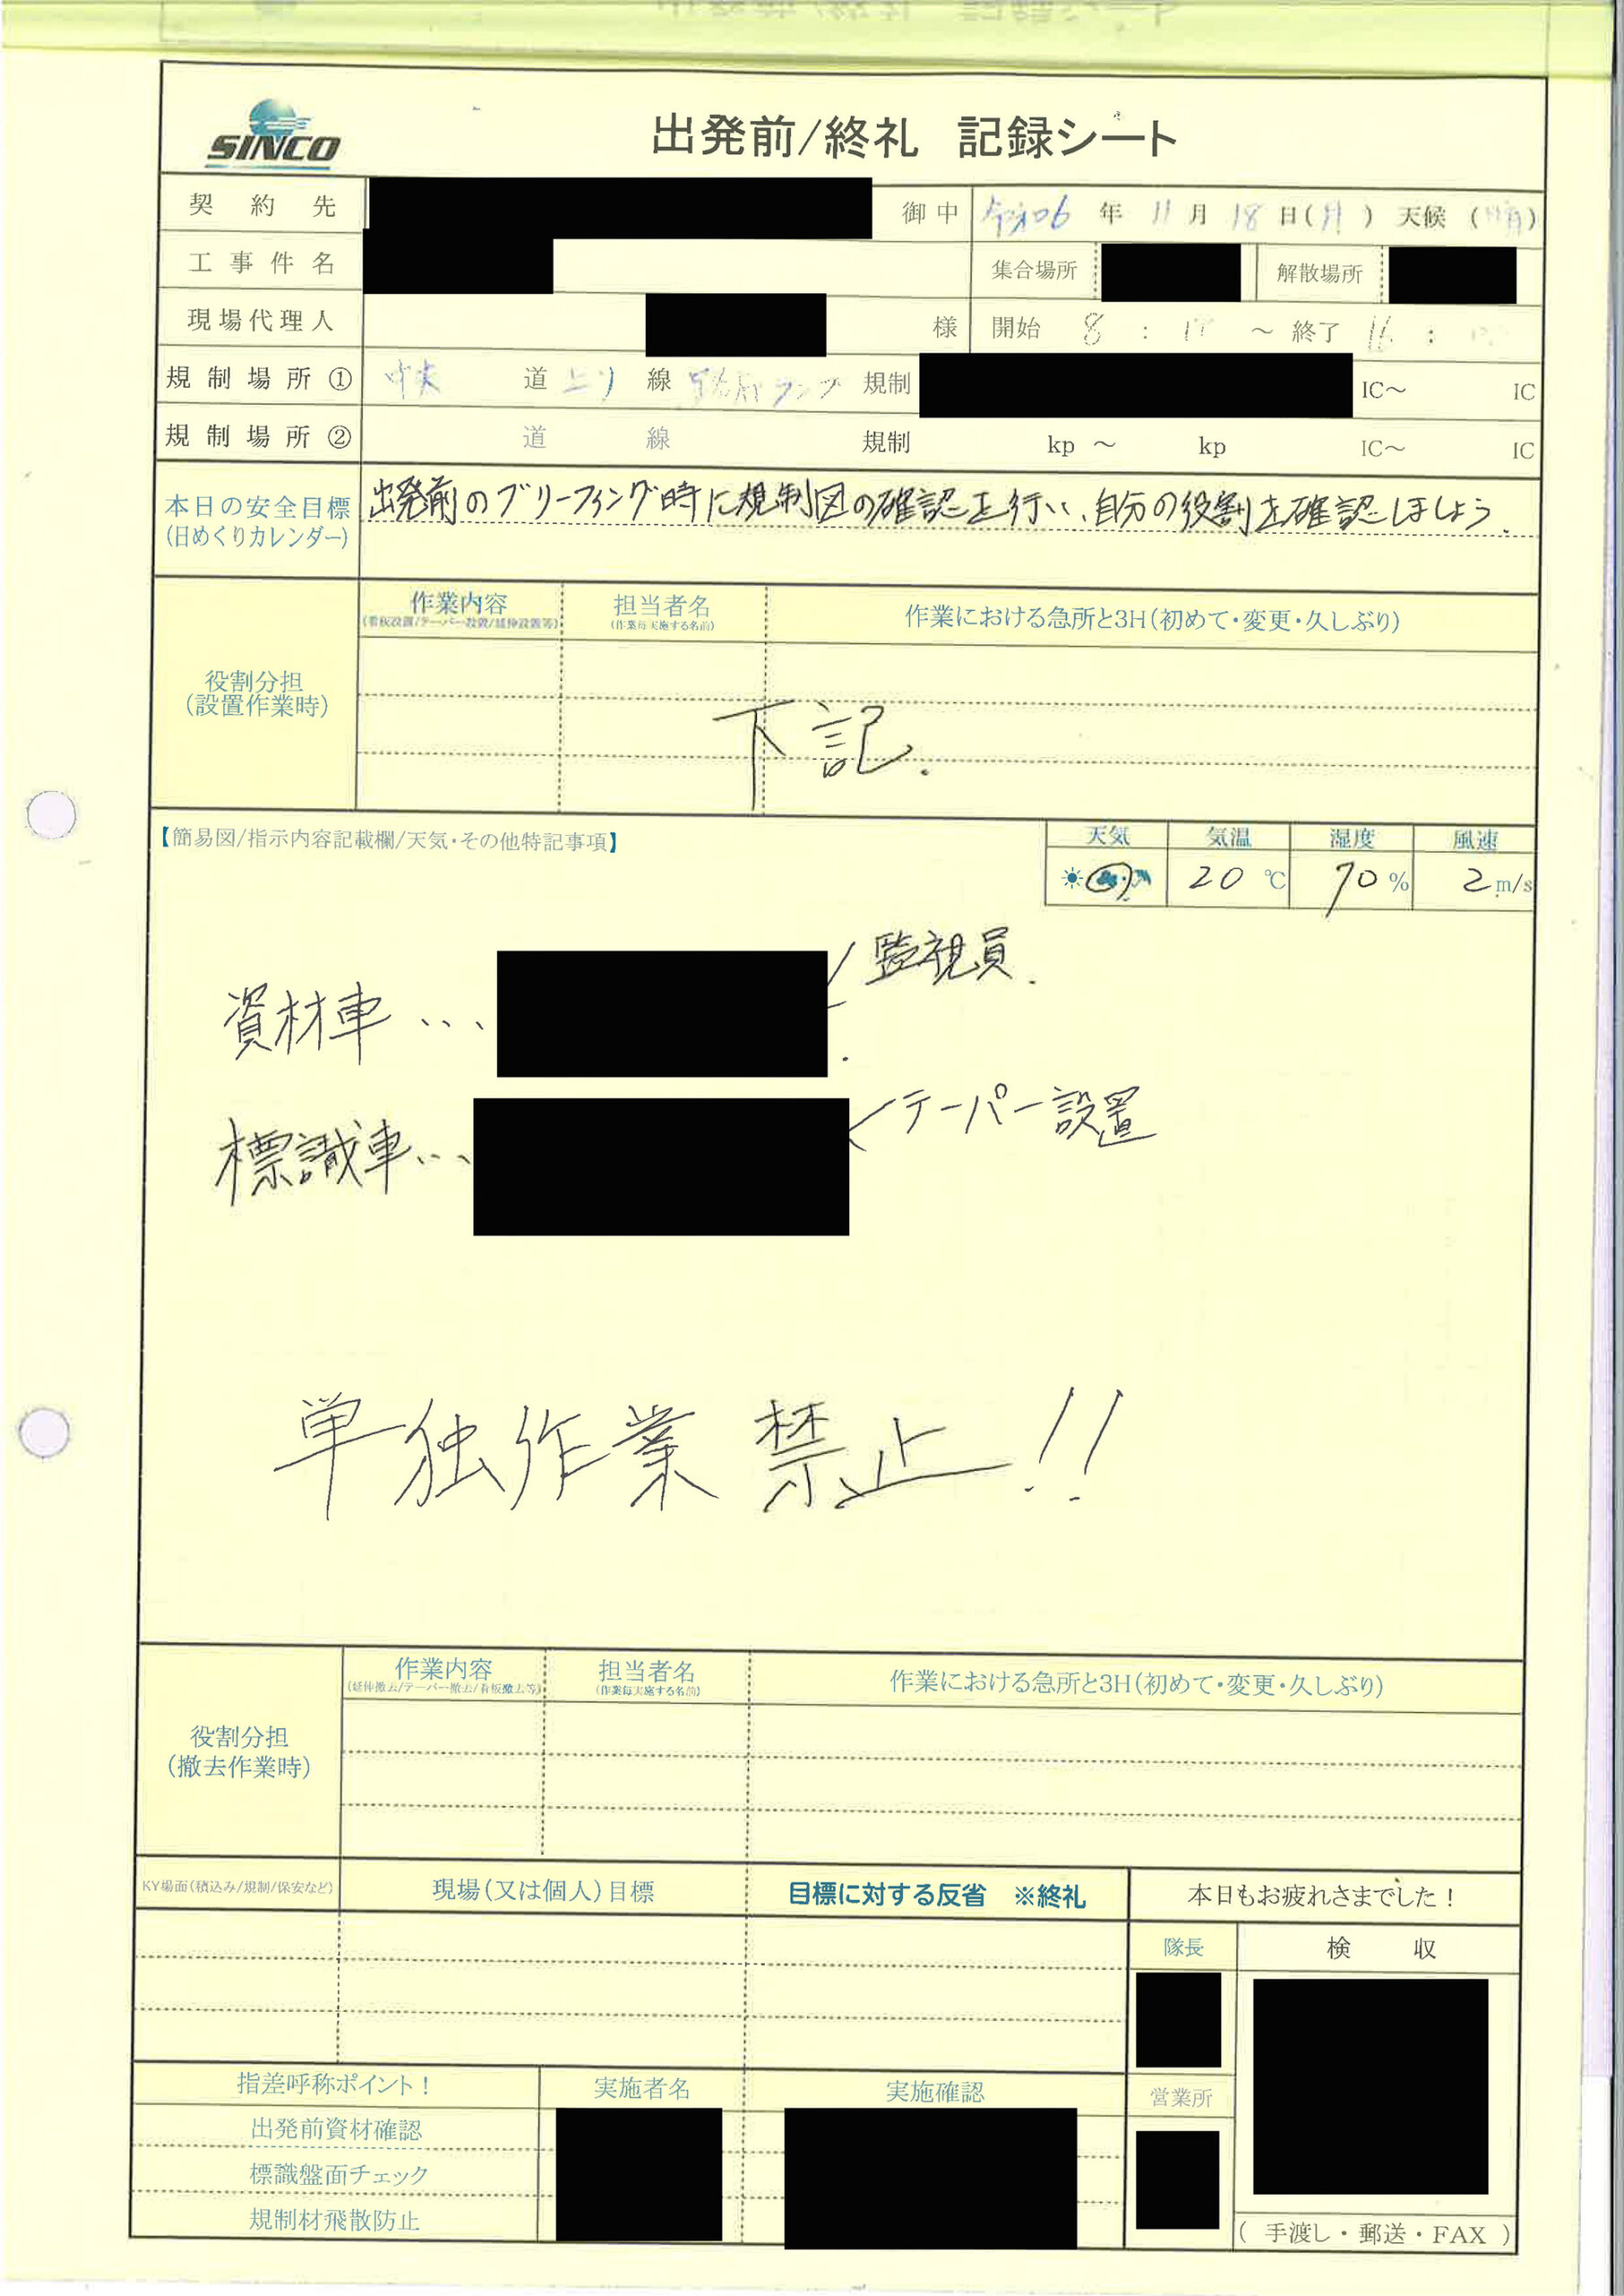 SINCO
出発前/終礼 記録シート
契約先 御中 令和06年 11月 18日(月) 天候(晴)
工事件名 集合場所 解散場所
現場代理人 様 開始 8: ～ 終了 16:
規制場所① 中央 道 上り 線 ランプ 規制 IC～ IC
規制場所② 道 線 規制 kp ～ kp IC～ IC
本日の安全目標
(日めくりカレンダー)
出発前のブリーフィング時に規制図の確認を行い、自分の役割を確認しましょう.
作業内容 担当者名 作業における急所と3H(初めて・変更・久しぶり)
(看板設置/テーパー設置/延伸設置等) (作業毎実施する名前)
役割分担
(設置作業時)
下記.
【簡易図/指示内容記載欄/天気・その他特記事項】
天気 気温 湿度 風速
20 ℃ 70 % 2 m/s
監視員.
資材車…
テーパー設置
標識車…
単独作業禁止!!
作業内容 担当者名 作業における急所と3H(初めて・変更・久しぶり)
(延伸撤去/テーパー撤去/看板撤去等) (作業毎実施する名前)
役割分担
(撤去作業時)
KY場面(積込み/規制/保安など) 現場(又は個人)目標 目標に対する反省 ※終礼 本日もお疲れさまでした!
隊長 検収
指差呼称ポイント! 実施者名 実施確認 営業所
出発前資材確認
標識盤面チェック
規制材飛散防止
(手渡し・郵送・FAX)